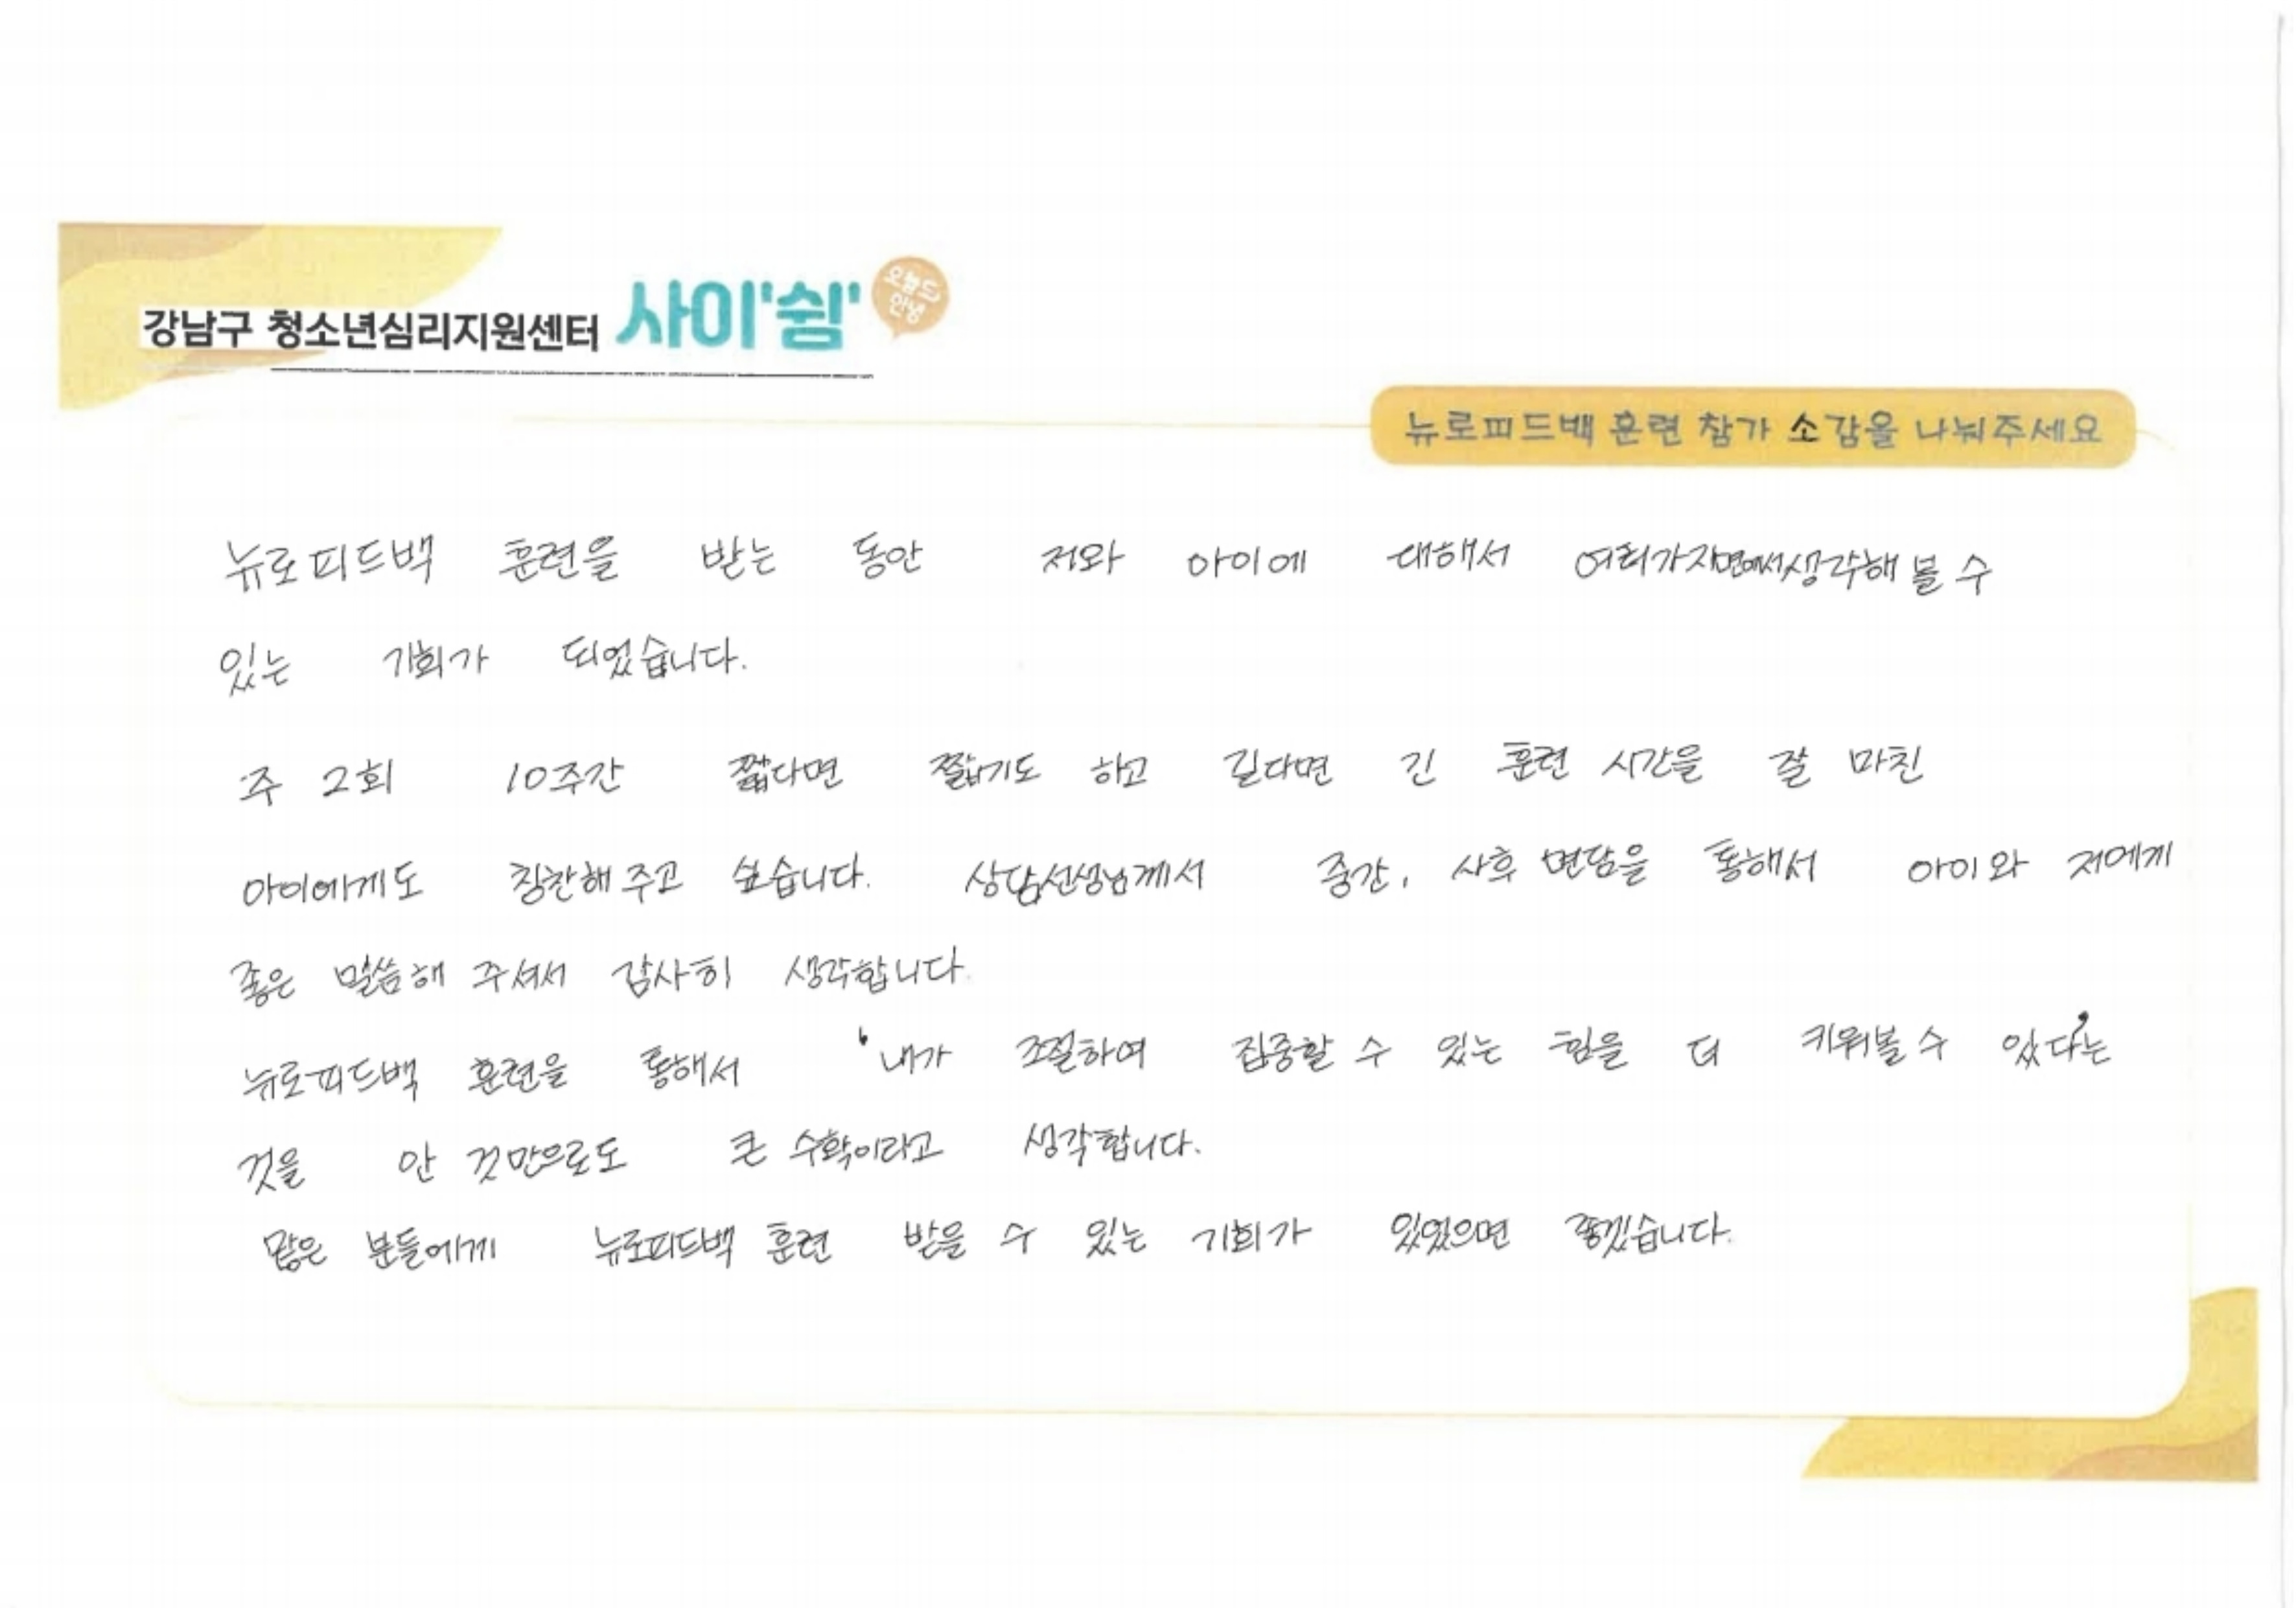 강남구 청소년심리지원센터 사이'쉼' 오늘도 안녕
뉴로피드백 훈련 참가 소감을 나눠주세요
뉴로피드백 훈련을 받는 동안 저와 아이에 대해서 여러가지면에서생각해 볼 수
있는 기회가 되었습니다.
주 2회 10주간 짧다면 짧기도 하고 길다면 긴 훈련 시간을 잘 마친
아이에게도 칭찬해 주고 싶습니다. 상담선생님께서 중간, 사후 면담을 통해서 아이와 저에게
좋은 말씀해 주셔서 감사히 생각합니다.
뉴로피드백 훈련을 통해서 '내가 조절하여 집중할 수 있는 힘을 더 키워볼 수 있다'는
것을 안 것만으로도 큰 수확이라고 생각합니다.
많은 분들에게 뉴로피드백 훈련 받을 수 있는 기회가 있었으면 좋겠습니다.